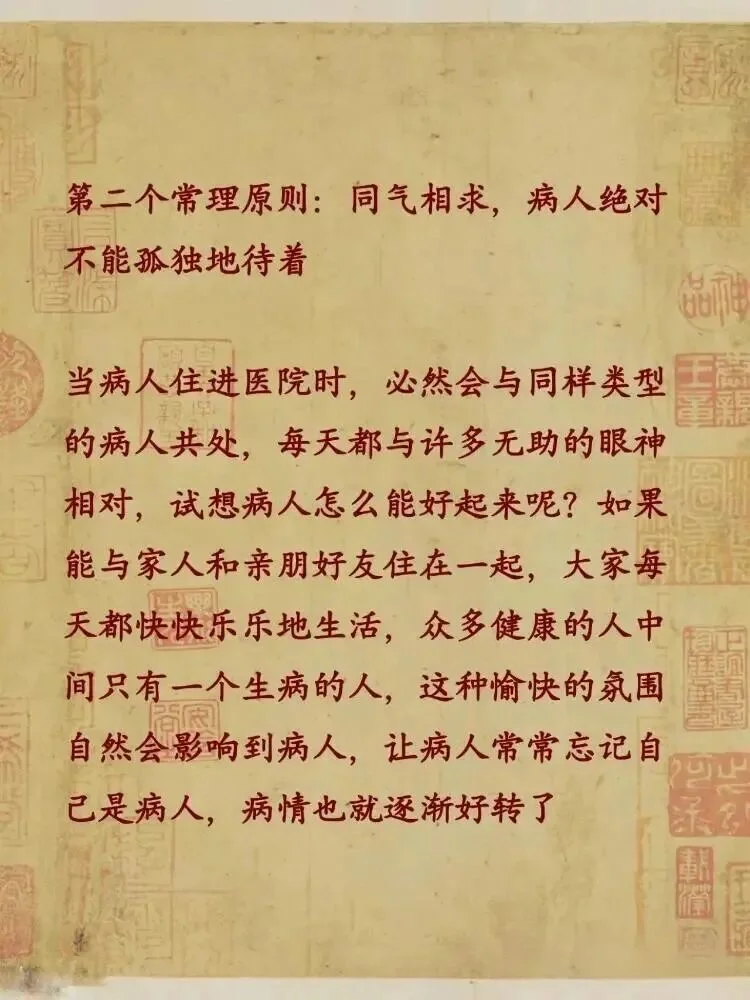 第二个常理原则：同气相求，病人绝对
不能孤独地待着
当病人住进医院时，必然会与同样类型
的病人共处，每天都与许多无助的眼神
相对，试想病人怎么能好起来呢？如果
能与家人和亲朋好友住在一起，大家每
天都快快乐乐地生活，众多健康的人中
间只有一个生病的人，这种愉快的氛围
自然会影响到病人，让病人常常忘记自
己是病人，病情也就逐渐好转了